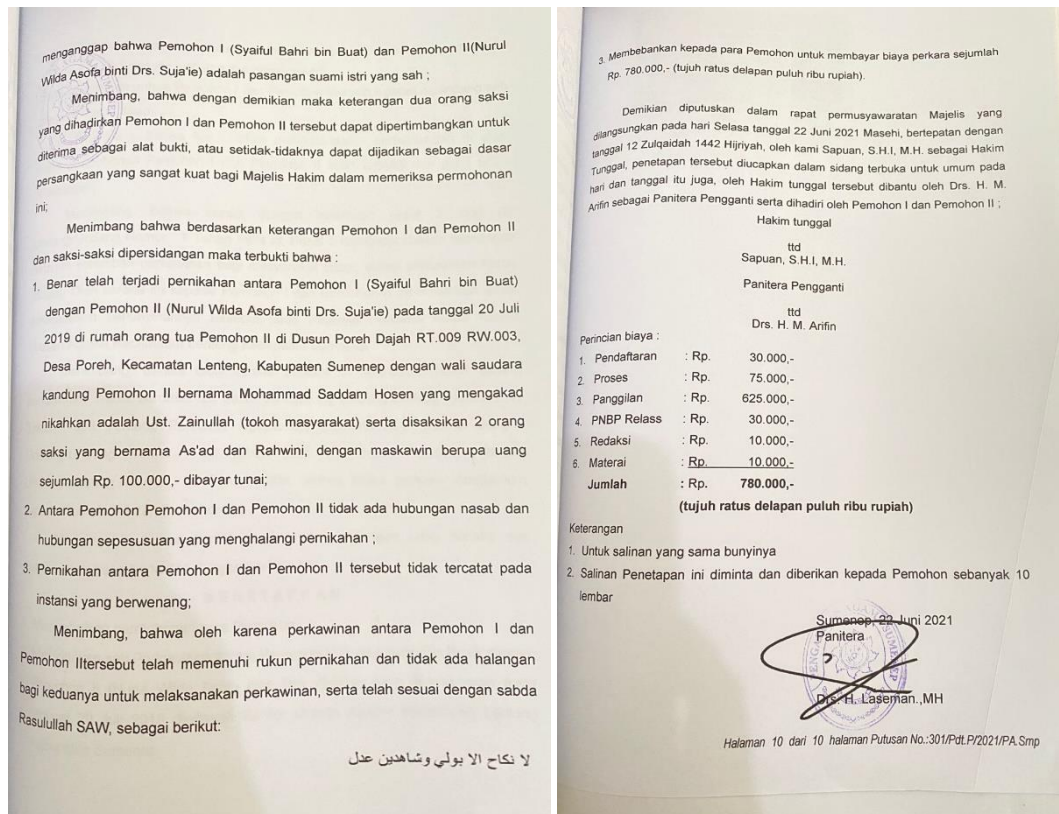 menganggap bahwa Pemohon I (Syaiful Bahri bin Buat) dan Pemohon II(Nurul
Wilda Asofa binti Drs. Suja'ie) adalah pasangan suami istri yang sah ;
Menimbang, bahwa dengan demikian maka keterangan dua orang saksi
yang dihadirkan Pemohon I dan Pemohon II tersebut dapat dipertimbangkan untuk
diterima sebagai alat bukti, atau setidak-tidaknya dapat dijadikan sebagai dasar
persangkaan yang sangat kuat bagi Majelis Hakim dalam memeriksa permohonan
ini;
Menimbang bahwa berdasarkan keterangan Pemohon I dan Pemohon II
dan saksi-saksi dipersidangan maka terbukti bahwa :
1. Benar telah terjadi pernikahan antara Pemohon I (Syaiful Bahri bin Buat)
dengan Pemohon II (Nurul Wilda Asofa binti Drs. Suja'ie) pada tanggal 20 Juli
2019 di rumah orang tua Pemohon II di Dusun Poreh Dajah RT.009 RW.003,
Desa Poreh, Kecamatan Lenteng, Kabupaten Sumenep dengan wali saudara
kandung Pemohon II bernama Mohammad Saddam Hosen yang mengakad
nikahkan adalah Ust. Zainullah (tokoh masyarakat) serta disaksikan 2 orang
saksi yang bernama As'ad dan Rahwini, dengan maskawin berupa uang
sejumlah Rp. 100.000,- dibayar tunai;
2. Antara Pemohon Pemohon I dan Pemohon II tidak ada hubungan nasab dan
hubungan sepesusuan yang menghalangi pernikahan ;
3. Pernikahan antara Pemohon I dan Pemohon II tersebut tidak tercatat pada
instansi yang berwenang;
Menimbang, bahwa oleh karena perkawinan antara Pemohon I dan
Pemohon IItersebut telah memenuhi rukun pernikahan dan tidak ada halangan
bagi keduanya untuk melaksanakan perkawinan, serta telah sesuai dengan sabda
Rasulullah SAW, sebagai berikut:
لا نكاح الا بولي وشاهدين عدل
3. Membebankan kepada para Pemohon untuk membayar biaya perkara sejumlah
Rp. 780.000,- (tujuh ratus delapan puluh ribu rupiah).
Demikian diputuskan dalam rapat permusyawaratan Majelis yang
dilangsungkan pada hari Selasa tanggal 22 Juni 2021 Masehi, bertepatan dengan
tanggal 12 Zulqaidah 1442 Hijriyah, oleh kami Sapuan, S.H.I, M.H. sebagai Hakim
Tunggal, penetapan tersebut diucapkan dalam sidang terbuka untuk umum pada
hari dan tanggal itu juga, oleh Hakim tunggal tersebut dibantu oleh Drs. H. M.
Arifin sebagai Panitera Pengganti serta dihadiri oleh Pemohon I dan Pemohon II ;
Hakim tunggal
ttd
Sapuan, S.H.I, M.H.
Panitera Pengganti
ttd
Drs. H. M. Arifin
Perincian biaya :
1. Pendaftaran : Rp. 30.000,-
2. Proses : Rp. 75.000,-
3. Panggilan : Rp. 625.000,-
4. PNBP Relass : Rp. 30.000,-
5. Redaksi : Rp. 10.000,-
6. Materai : Rp. 10.000,-
Jumlah : Rp. 780.000,-
(tujuh ratus delapan puluh ribu rupiah)
Keterangan
1. Untuk salinan yang sama bunyinya
2. Salinan Penetapan ini diminta dan diberikan kepada Pemohon sebanyak 10
lembar
Sumenep, 22 Juni 2021
Panitera
Drs. H. Laseman.,MH
Halaman 10 dari 10 halaman Putusan No.:301/Pdt.P/2021/PA.Smp